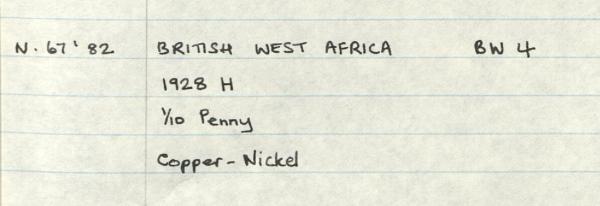 N. 67'82 BRITISH WEST AFRICA BW 4
1928 H
1/10 Penny
Copper-Nickel